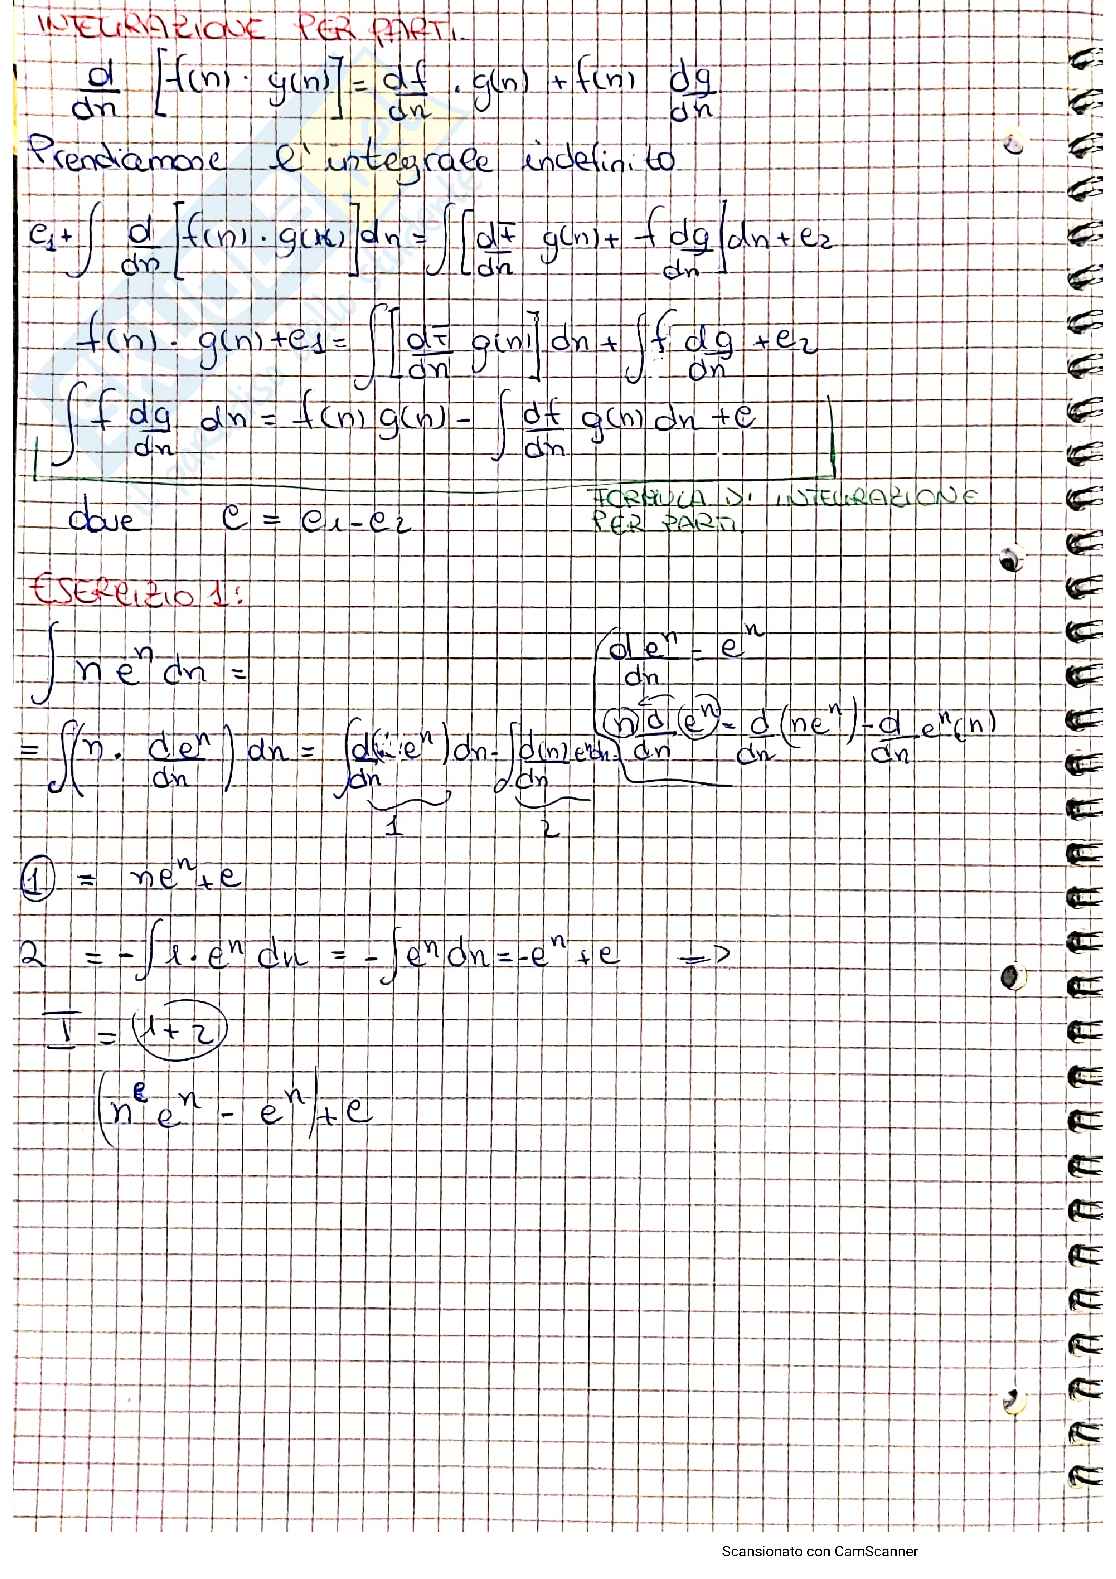 INTEGRAZIONE PER PARTI.
d/dn [f(n) · g(n)] = df/dn · g(n) + f(n) dg/dn
Prendiamone l'integrale indefinito
c1 + ∫ d/dn [f(n) · g(x)] dn = ∫ [df/dn g(n) + f dg/dn] dn + c2
f(n) · g(n) + c1 = ∫ [df/dn g(n)] dn + ∫ f dg/dn + c2
∫ f dg/dn dn = f(n) g(n) - ∫ df/dn g(n) dn + c
FORMULA DI INTEGRAZIONE
PER PARTI
dove c = c1 - c2
ESERCIZIO 1:
∫ n e^n dn =
d e^n/dn = e^n
(n) d/dn (e^n) = d/dn (n e^n) - d/dn e^n (n)
= ∫ (n · d e^n/dn) dn = ∫ d/dn ( · e^n) dn - ∫ d(n)/dn e^n dn
1 2
① = n e^n + c
2 = - ∫ 1 · e^n dn = - ∫ e^n dn = - e^n + c =>
I = (1 + 2)
(n^e e^n - e^n) + c
Scansionato con CamScanner